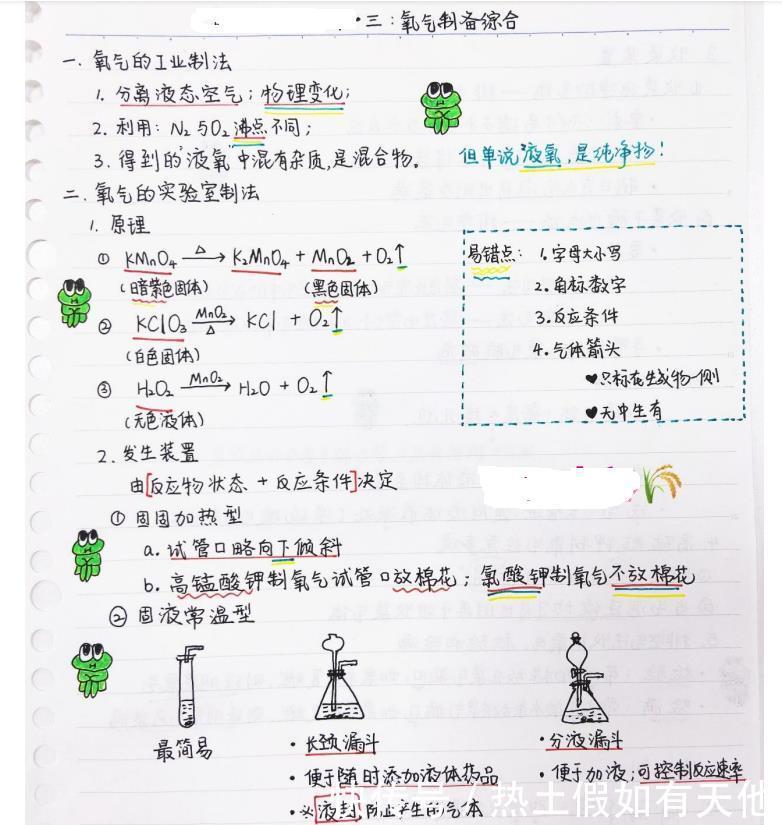 ·三:氧气制备综合
一. 氧气的工业制法
1. 分离液态空气; 物理变化;
2. 利用: N₂与O₂沸点不同;
3. 得到的"液氧"中混有杂质,是混合物。 但单说液氧,是纯净物!
二. 氧气的实验室制法
1. 原理
① KMnO₄ —△→ K₂MnO₄ + MnO₂ + O₂↑
(暗紫色固体) (黑色固体)
② KClO₃ —MnO₂/△→ KCl + O₂↑
(白色固体)
③ H₂O₂ —MnO₂→ H₂O + O₂↑
(无色液体)
易错点: 1. 字母大小写
2. 角标数字
3. 反应条件
4. 气体箭头
♥只标在生成物一侧
♥无中生有
2. 发生装置
由[反应物状态 + 反应条件]决定
① 固固加热型
a. 试管口略向下倾斜
b. 高锰酸钾制氧气试管口放棉花; 氯酸钾制氧气不放棉花
② 固液常温型
最简易
·长颈漏斗
·便于随时添加液体药品
·※液封,防止产生的气体
·分液漏斗
·便于加液;可控制反应速率
热土假如有天他